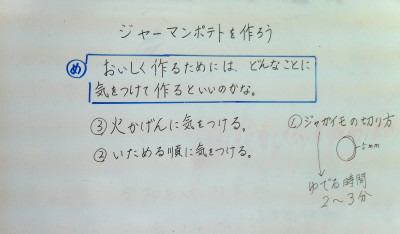 ジャーマンポテトを作ろう
め おいしく作るためには、どんなことに
気をつけて作るといいのかな。
③火かげんに気をつける。
②いためる順に気をつける。
①ジャガイモの切り方
5mm
ゆでる時間
2〜3分